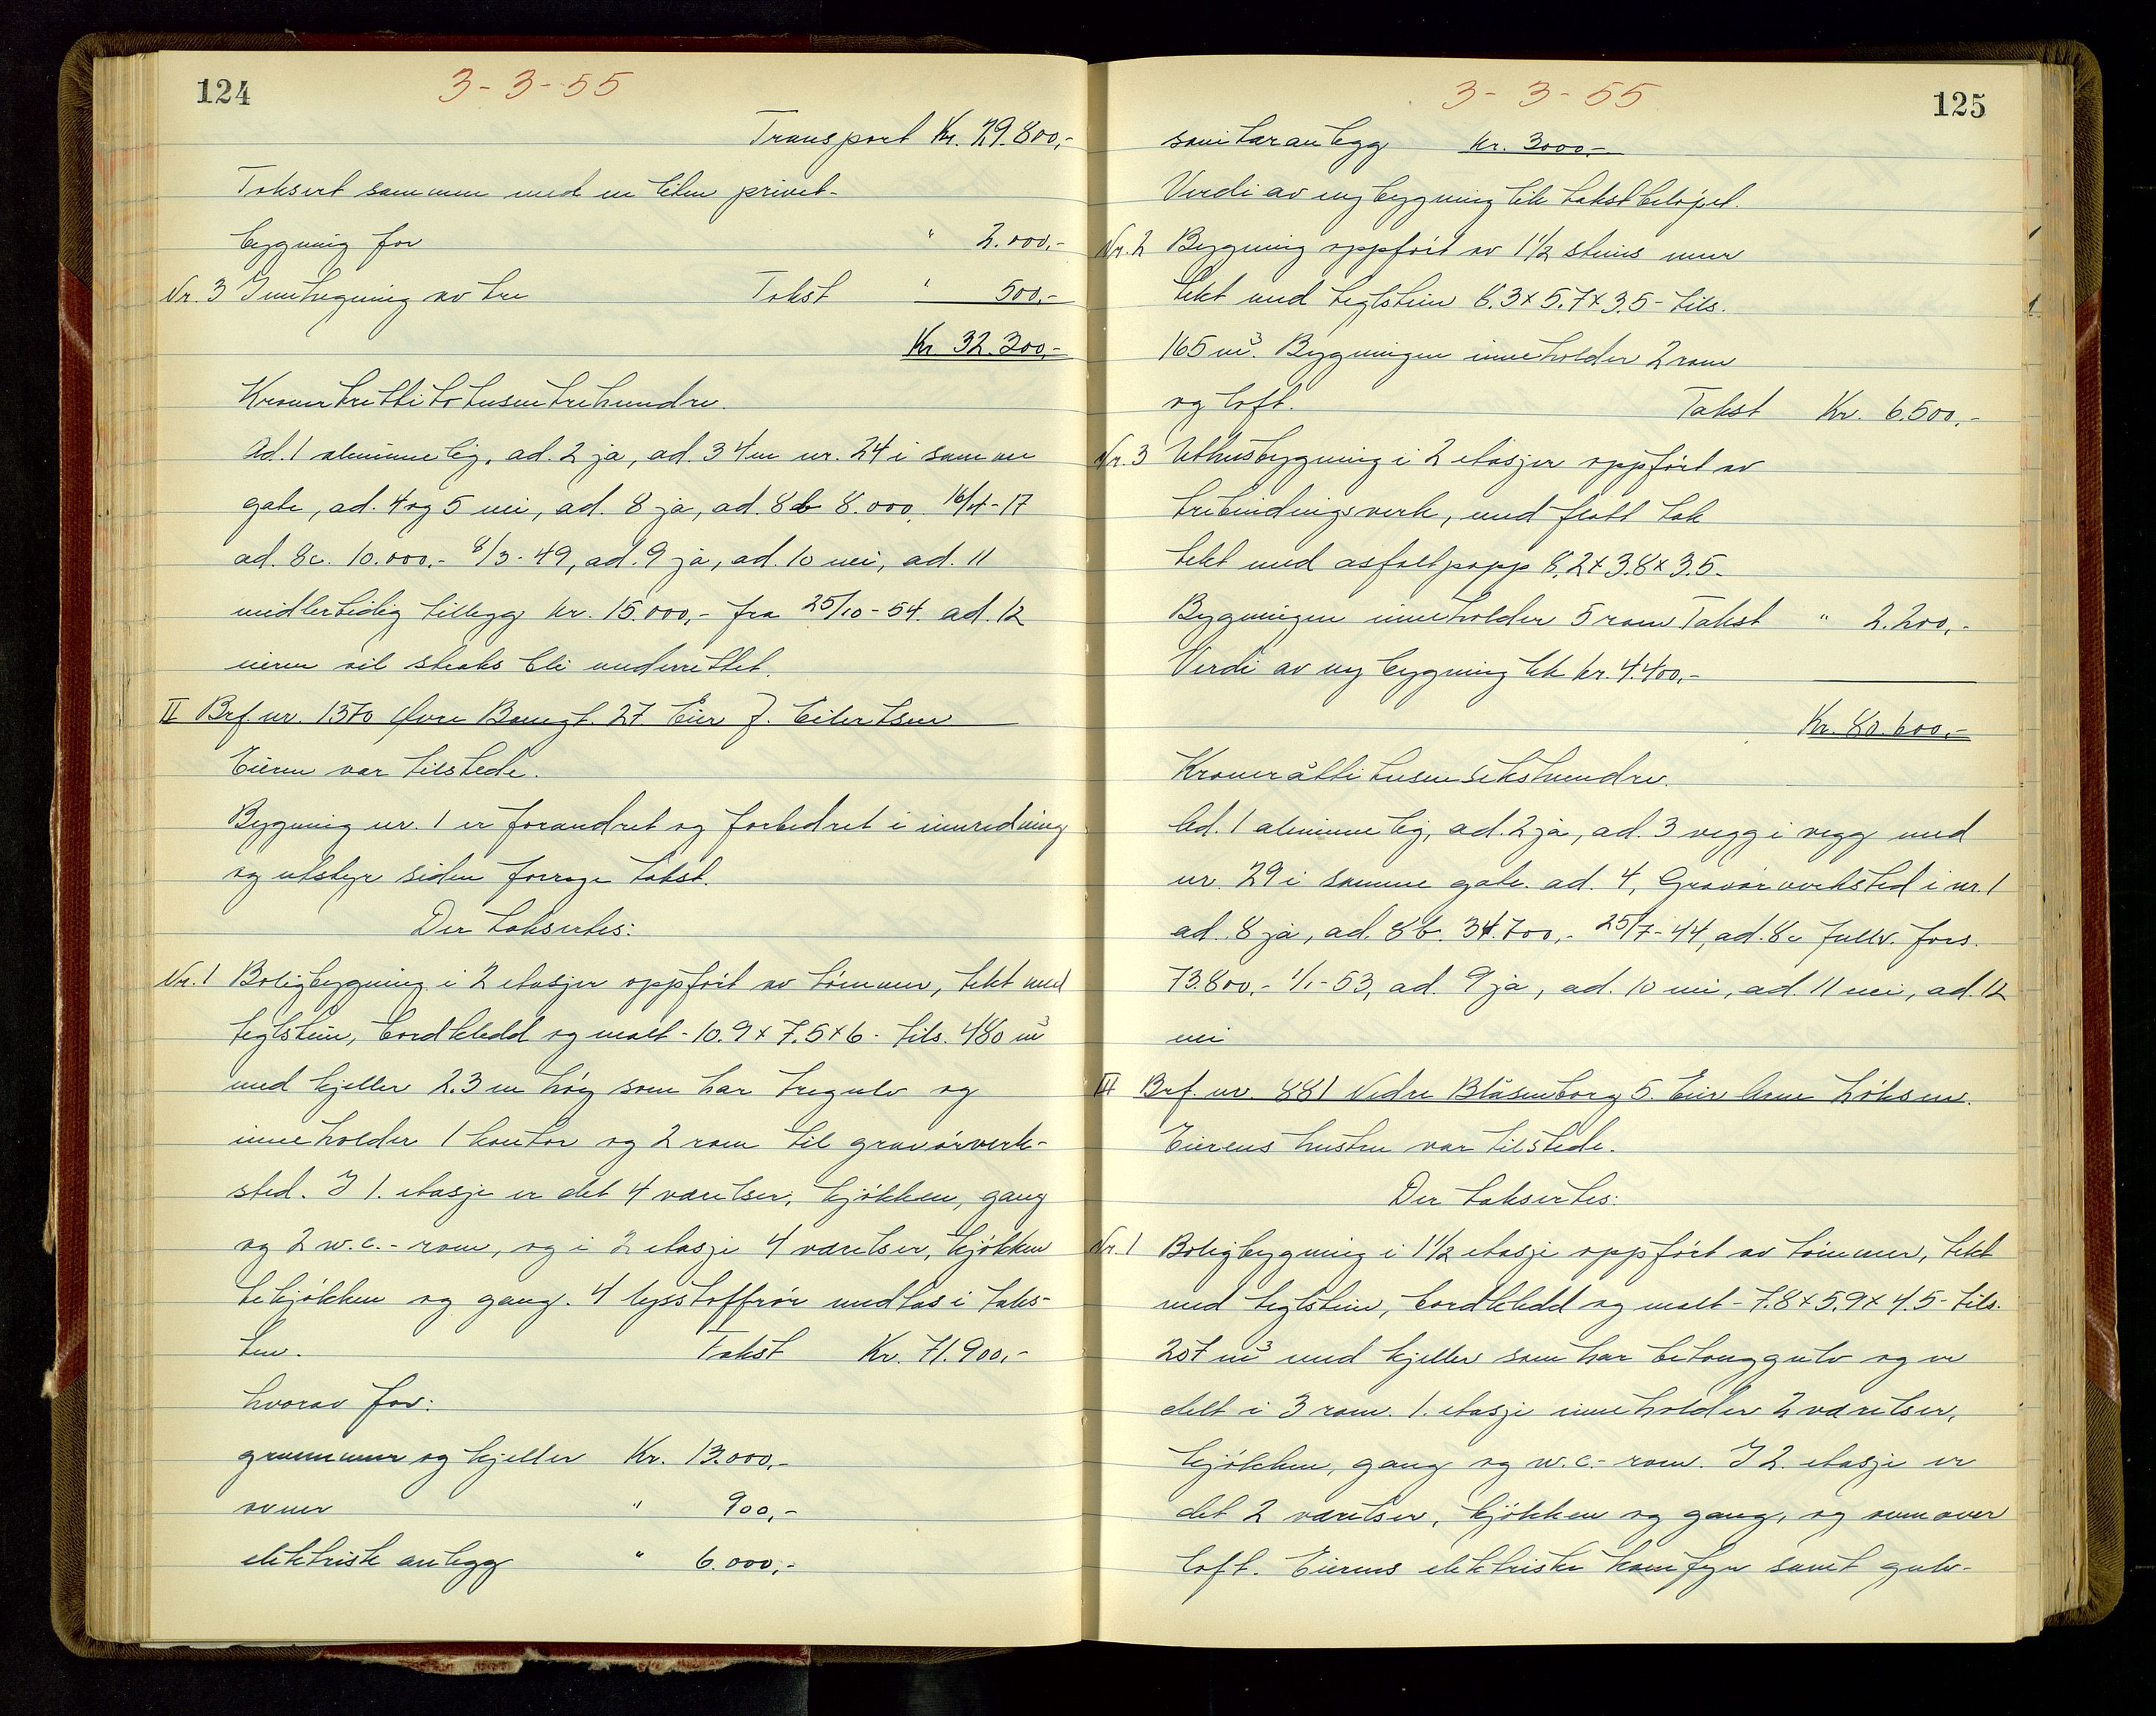 124
3-3-55
Transport Kr. 29.800,-
Taksert sammen med en liten privet-
bygning for " 2.000,-
Nr. 3 Innhegning av tre Takst " 500,-
Kr. 32.300,-
Kroner trettitotusentrehundre.
Ad. 1 alminnelig, ad. 2 ja, ad. 3 4m nr. 24 i samme
gate, ad. 4 og 5 nei, ad. 8 ja, ad. 8b 8.000, 16/4-17
ad. 8c. 10.000.- 8/3-49, ad. 9 ja, ad. 10 nei, ad. 11
midlertidig tillegg kr. 15.000,- fra 25/10-54. ad. 12
eieren vil straks bli underrettet.
II Brf. nr. 1370 Øvre Baneg. 27 Eier J. Eilertsen
Eieren var tilstede.
Bygning nr. 1 er forandret og forbedret i innredning
og utstyr siden forrige takst.
Der taksertes:
Nr. 1 Boligbygning i 2 etasjer oppført av tømmer, tekt med
teglstein, bordkledd og malt - 10.9 x 7.5 x 6 - tils. 480 m³
med kjeller 2.3 m høy som har tregulv og
inneholder 1 kontor og 2 rom til gravørverk-
sted. I 1. etasje er det 4 værelser, kjøkken, gang
og 2 w.c.-rom, og i 2 etasje 4 værelser, kjøkken
tekjøkken og gang. 4 lysstoffrør medtas i taks-
ten. Takst Kr. 71.900,-
hvorav for:
grunnmur og kjeller Kr. 13.000,-
ovner " 900,-
elektrisk anlegg " 6.000,-
125
3-3-55
sanitæranlegg kr. 3000,-
Verdi av ny bygning lik takstbeløpet.
Nr. 2 Bygning oppført av 1½ steins mur
tekt med teglstein 8.3 x 5.7 x 3.5 - tils.
165 m³. Bygningen inneholder 2 rom
og loft. Takst Kr. 6.500,-
Nr. 3 Uthusbygning i 2 etasjer oppført av
trebindingsverk, med flatt tak
tekt med asfaltpapp 8.2 x 3.8 x 3.5.
Bygningen inneholder 5 rom Takst " 2.200,-
Verdi av ny bygning lik kr. 4.400,-
Kr. 80.600,-
Kroner åttitusensekshundre.
Ad. 1 alminnelig, ad. 2 ja, ad. 3 vegg i vegg med
nr. 29 i samme gate. ad. 4, Gravørverksted i nr. 1
ad. 8 ja, ad. 8b. 34.700,- 25/7-44, ad. 8c fullv. fors.
73.800,- 1/1-53, ad. 9 ja, ad. 10 nei, ad. 11 nei, ad. 12
nei
III Brf. nr. 881 Nedre Blåsenborg 5. Eier Arne Løksen.
Eierens hustru var tilstede.
Der taksertes:
Nr. 1 Boligbygning i 1½ etasje oppført av tømmer, tekt
med teglstein, bordkledd og malt - 7.8 x 5.9 x 4.5 - tils.
207 m³ med kjeller som har betonggulv og er
delt i 3 rom. 1. etasje inneholder 2 værelser,
kjøkken, gang og w.c.-rom. I 2. etasje er
det 2 værelser, kjøkken og gang, og ovenover
loft. Eierens elektriske komfyr samt gulv-